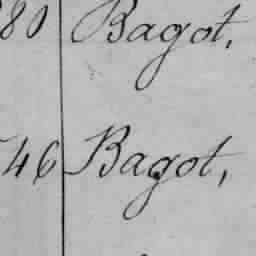 80 Bagot,
46 Bagot,